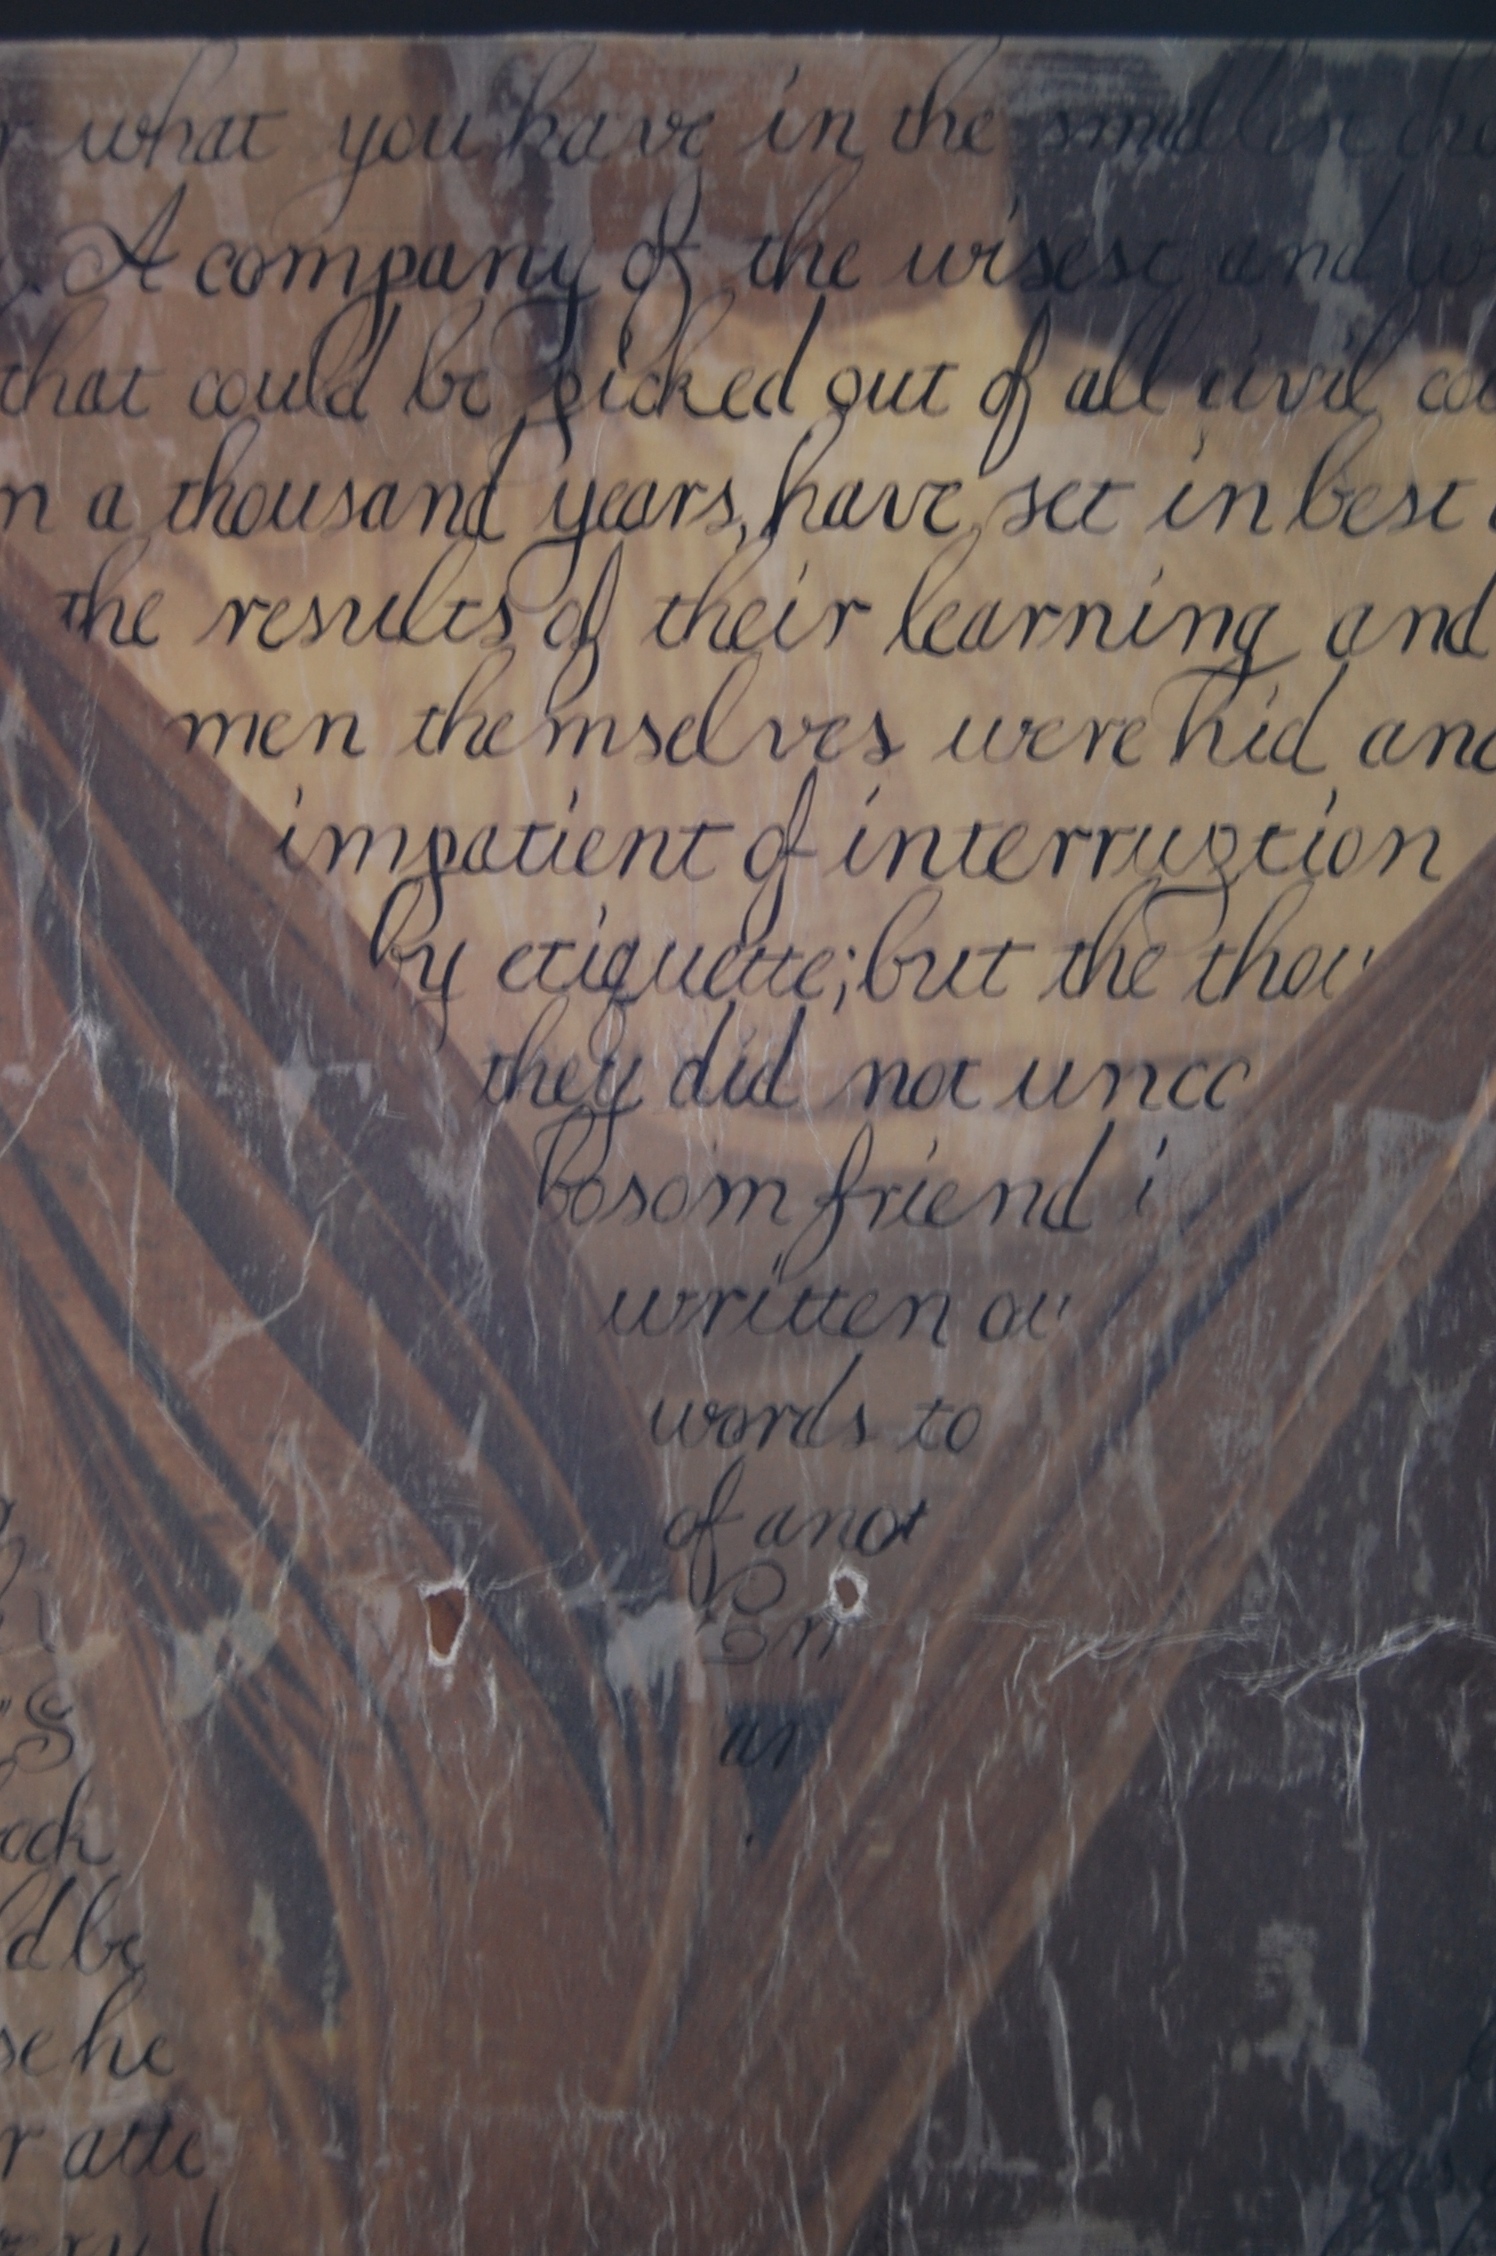 what you have in the smallest cho
. A company of the wisest and w
that could be picked out of all civil cou
n a thousand years, have set in best
the results of their learning and
men themselves were hid and
impatient of interruption
by etiquette; but the thou
they did not unco
bosom friend i
written ou
words to
of anot
Em
an
S
ook
d be
se he
r atte